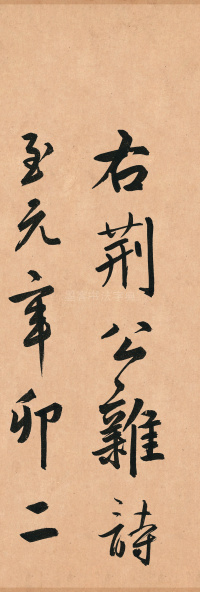 右荆公雜詩
至元辛卯二